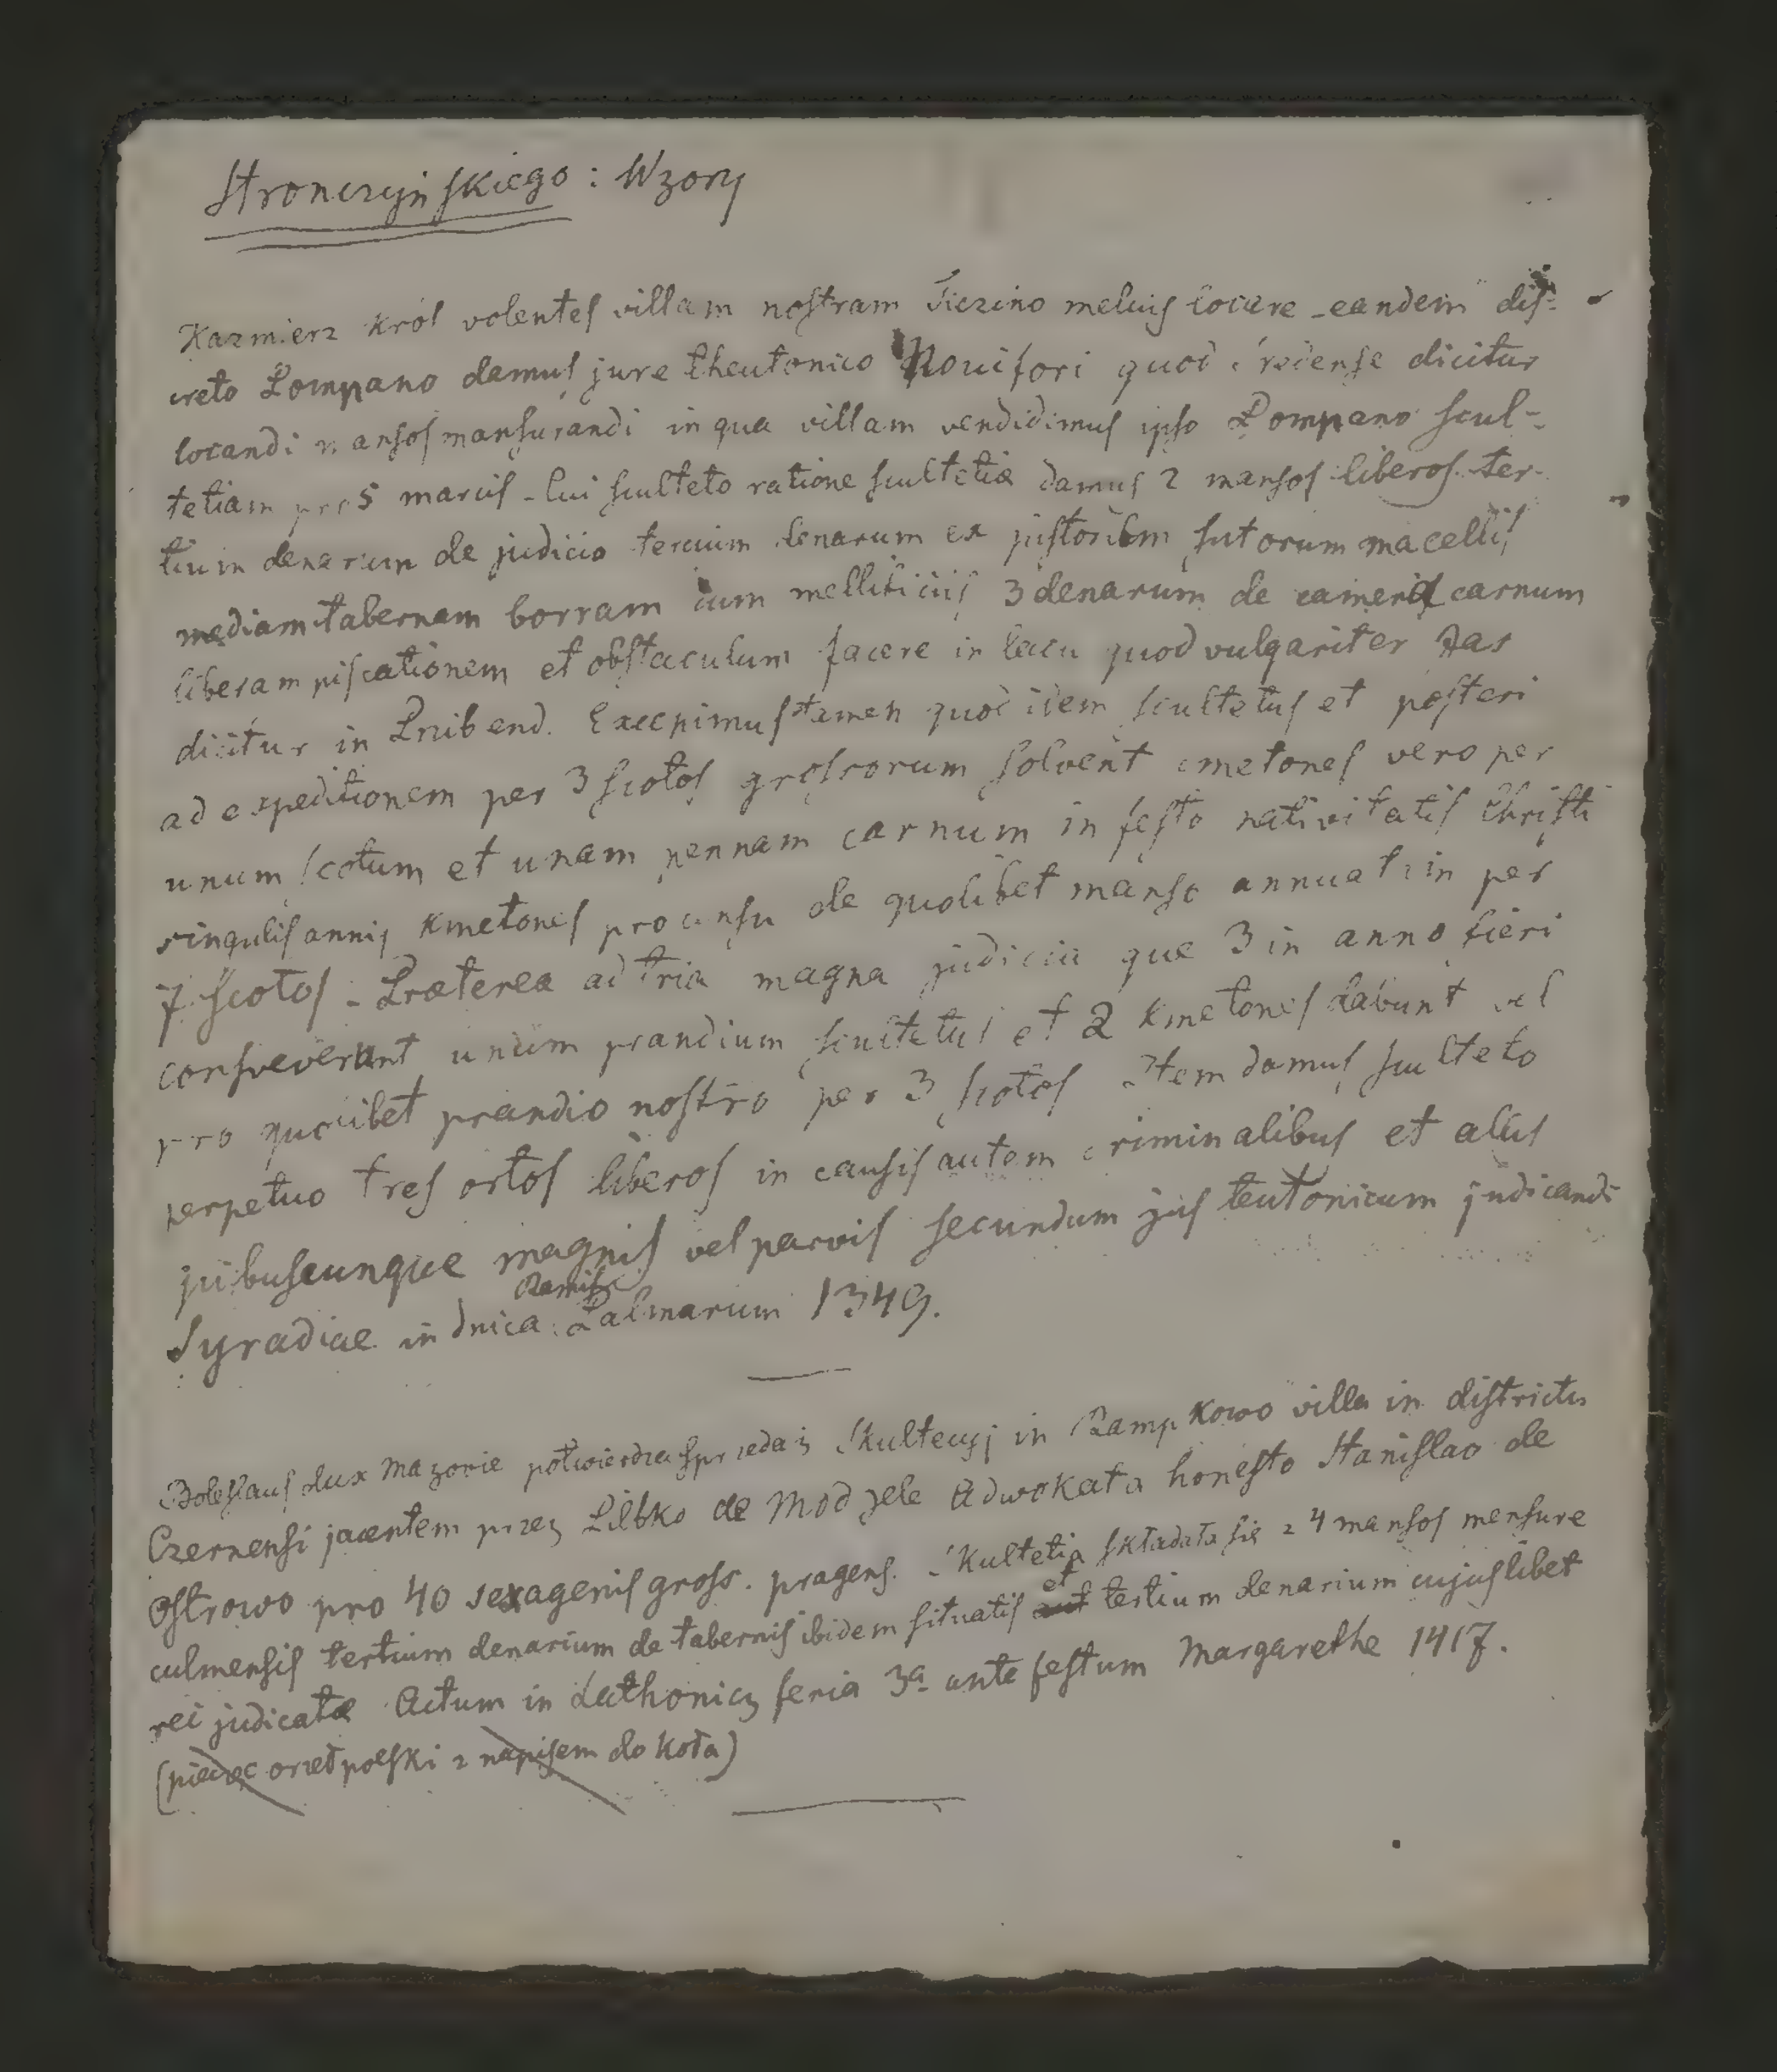 Stronczyńskiego : Wzory
Kazmierz król volentes villam nostram meluis locare - eandem dis-
creto Pompano damus jure theutonico Novifori quod dicitur
locandi mansos mansurandi in qua villam vendidimus ipso Pompano scul-
tetiam pro 5 marcis - Cui sculteto ratione scultetiæ damus 2 mansos liberos ter-
tium denarum de judicio tercium denarum ex sutorum macellis
mediam tabernam borram cum melliticiis 3 denarum de cameris carnum
liberam piscationem et obstaculum facere in lacu quod vulgariter Jas
dicitur in Excepimus tamen quod idem scultetus et posteri
ad expeditionem per 3 scotos grossorum solvent cmetones vero per
unum scotum et unam pernam carnum in festo nativitatis Christi
singulis annis Kmetones pro censu de quolibet manso annuatim per
7 scotos - Præterea ad tria magna judicia que 3 in anno fieri
consveverunt unum prandium scultetus et 2 Kmetones dabunt vel
pro quolibet prandio nostro per 3 scotos Item damus sculteto
perpetuo tres ortos liberos in causis autem criminalibus et aliis
magnis vel parvis secundum jus teutonicum judicandi
Syradiae in dnica Ramis Palmarum 1349.
Boleslaus dux Mazovie potwierdza sprzedaż Skultecyj in Rampkowo villa in districtu
Czernensi jacentem przez Lilbko de Modzele Adwokata honesto Stanislao de
Ostrowo pro 40 sexagenis gross. pragens. Skultetia składała się z 4 mansos mensure
culmensis tertium denarium de tabernis ibidem situatis et tertium denarium cujuslibet
rei judicatæ Actum in Lathonicz feria 3a ante festum Margarethe 1417.
(pieczęć orzeł polski z napisem do koła)